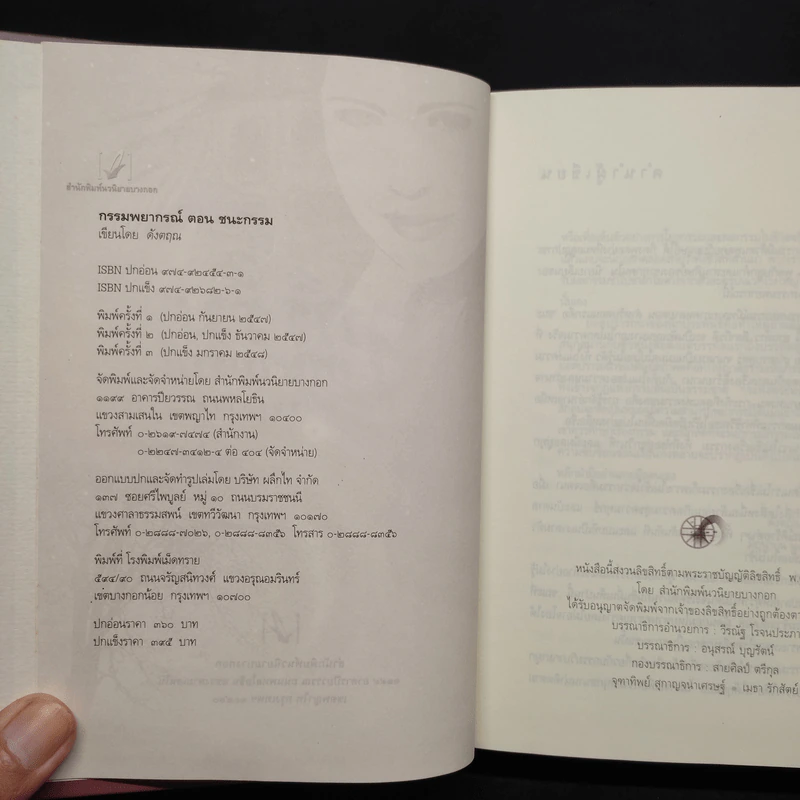 สำนักพิมพ์นวนิยายบางกอก
กรรมพยากรณ์ ตอน ชนะกรรม
เขียนโดย ดังตฤณ
ISBN ปกอ่อน ๙๗๔-๙๒๔๕๔-๓-๑
ISBN ปกแข็ง ๙๗๔-๙๒๖๘๒-๖-๑
พิมพ์ครั้งที่ ๑ (ปกอ่อน กันยายน ๒๕๔๗)
พิมพ์ครั้งที่ ๒ (ปกอ่อน, ปกแข็ง ธันวาคม ๒๕๔๗)
พิมพ์ครั้งที่ ๓ (ปกแข็ง มกราคม ๒๕๔๘)
จัดพิมพ์และจัดจำหน่ายโดย สำนักพิมพ์นวนิยายบางกอก
๑๑๙๙ อาคารปิยวรรณ ถนนพหลโยธิน
แขวงสามเสนใน เขตพญาไท กรุงเทพฯ ๑๐๔๐๐
โทรศัพท์ ๐-๒๖๑๙-๗๔๗๔ (สำนักงาน)
๐-๒๒๔๗-๓๔๑๒-๔ ต่อ ๔๐๔ (จัดจำหน่าย)
ออกแบบปกและจัดทำรูปเล่มโดย บริษัท ผลึกไท จำกัด
๑๓๗ ซอยศรีไพบูลย์ หมู่ ๑๐ ถนนบรมราชชนนี
แขวงศาลาธรรมสพน์ เขตทวีวัฒนา กรุงเทพฯ ๑๐๑๗๐
โทรศัพท์ ๐-๒๘๘๘-๗๐๒๖, ๐-๒๘๘๘-๘๓๕๖ โทรสาร ๐-๒๘๘๘-๘๓๕๖
พิมพ์ที่ โรงพิมพ์เม็ดทราย
๕๙๔/๙๐ ถนนจรัญสนิทวงศ์ แขวงอรุณอมรินทร์
เขตบางกอกน้อย กรุงเทพฯ ๑๐๗๐๐
ปกอ่อนราคา ๓๖๐ บาท
ปกแข็งราคา ๓๙๕ บาท
หนังสือนี้สงวนลิขสิทธิ์ตามพระราชบัญญัติลิขสิทธิ์ พ.
โดย สำนักพิมพ์นวนิยายบางกอก
ได้รับอนุญาตจัดพิมพ์จากเจ้าของลิขสิทธิ์อย่างถูกต้องตา
บรรณาธิการอำนวยการ : วีรณัฐ โรจนประภา
บรรณาธิการ : อนุสรณ์ บุญรัตน์
กองบรรณาธิการ : สายศิลป์ ตรีกุล
จุฑาทิพย์ สุกาญจนาเศรษฐ์ เมธา รักสัตย์